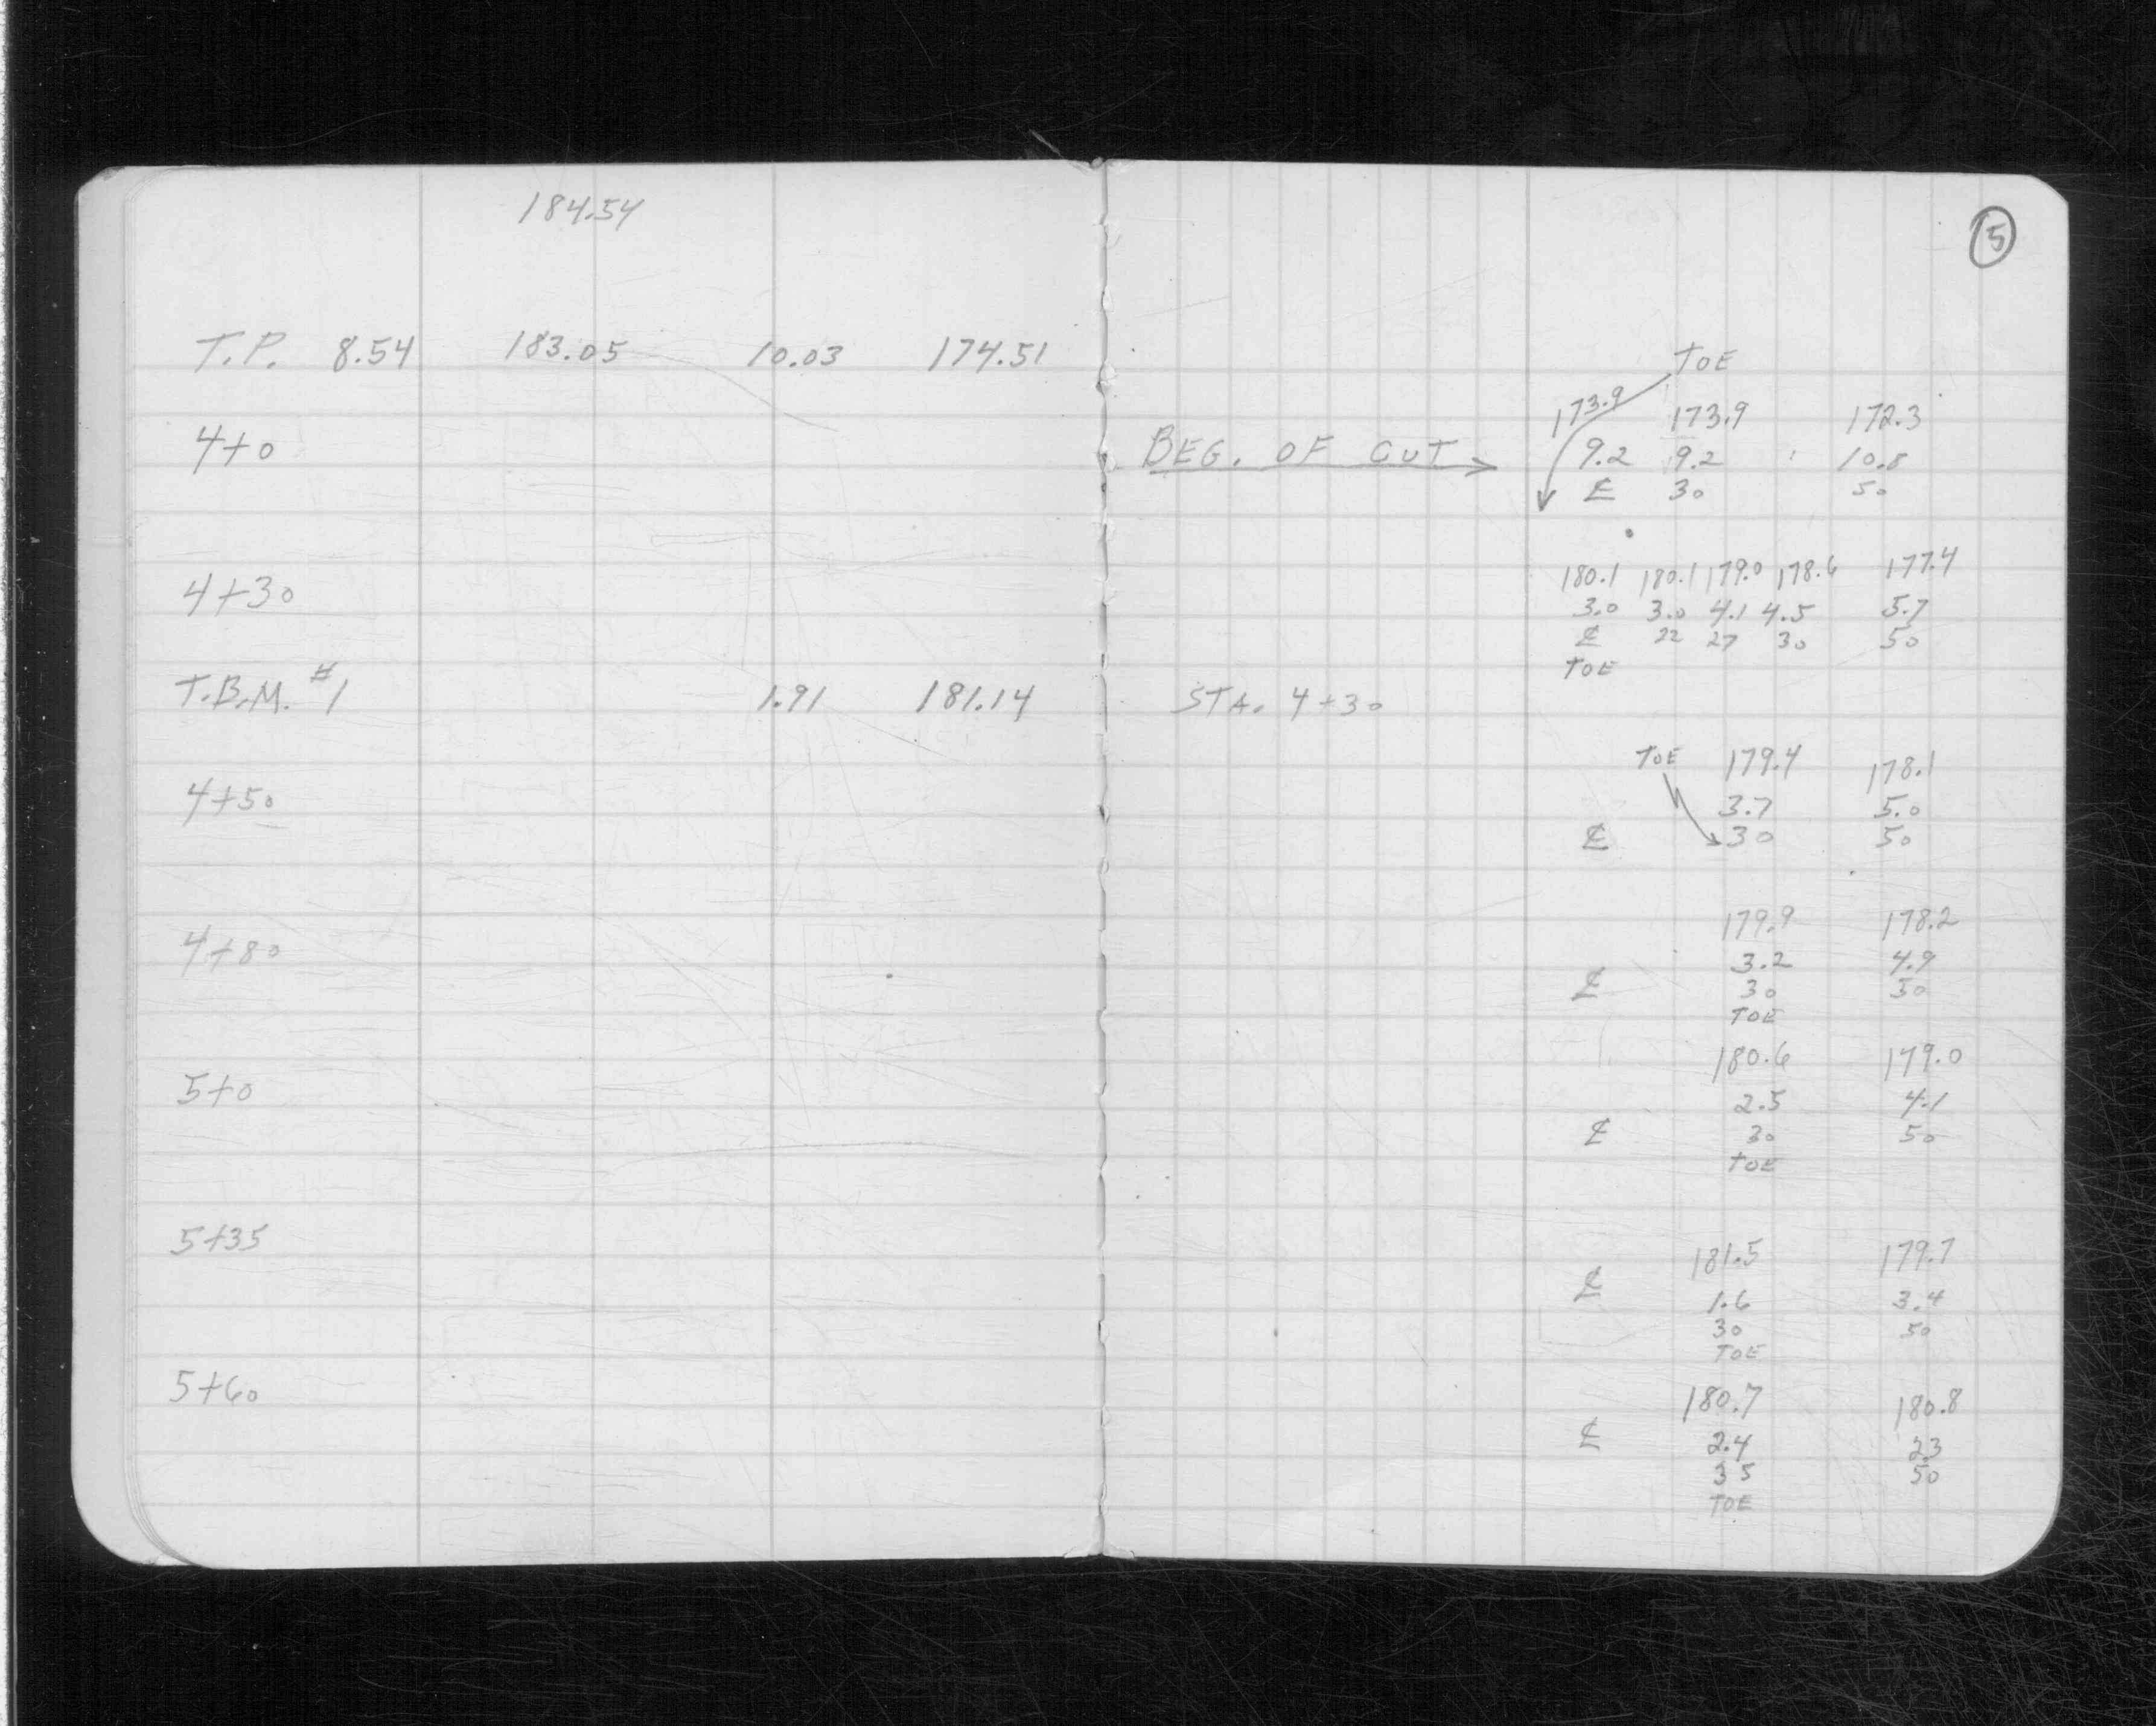 184.54
T.P. 8.54 183.05 10.03 174.51
4+0
4+30
T.B.M. #1 1.91 181.14
4+50
4+80
5+0
5+35
5+60
5
TOE
173.9 173.9 172.3
BEG. OF CUT 9.2 9.2 10.8
℄ 30 50
180.1 180.1 179.0 178.6 177.4
3.0 3.0 4.1 4.5 5.7
℄ 22 27 30 50
TOE
STA. 4+30
TOE 179.4 178.1
3.7 5.0
℄ 30 50
179.9 178.2
3.2 4.9
℄ 30 50
TOE
180.6 179.0
2.5 4.1
℄ 30 50
TOE
181.5 179.7
℄ 1.6 3.4
30 50
TOE
180.7 180.8
℄ 2.4 2.3
35 50
TOE